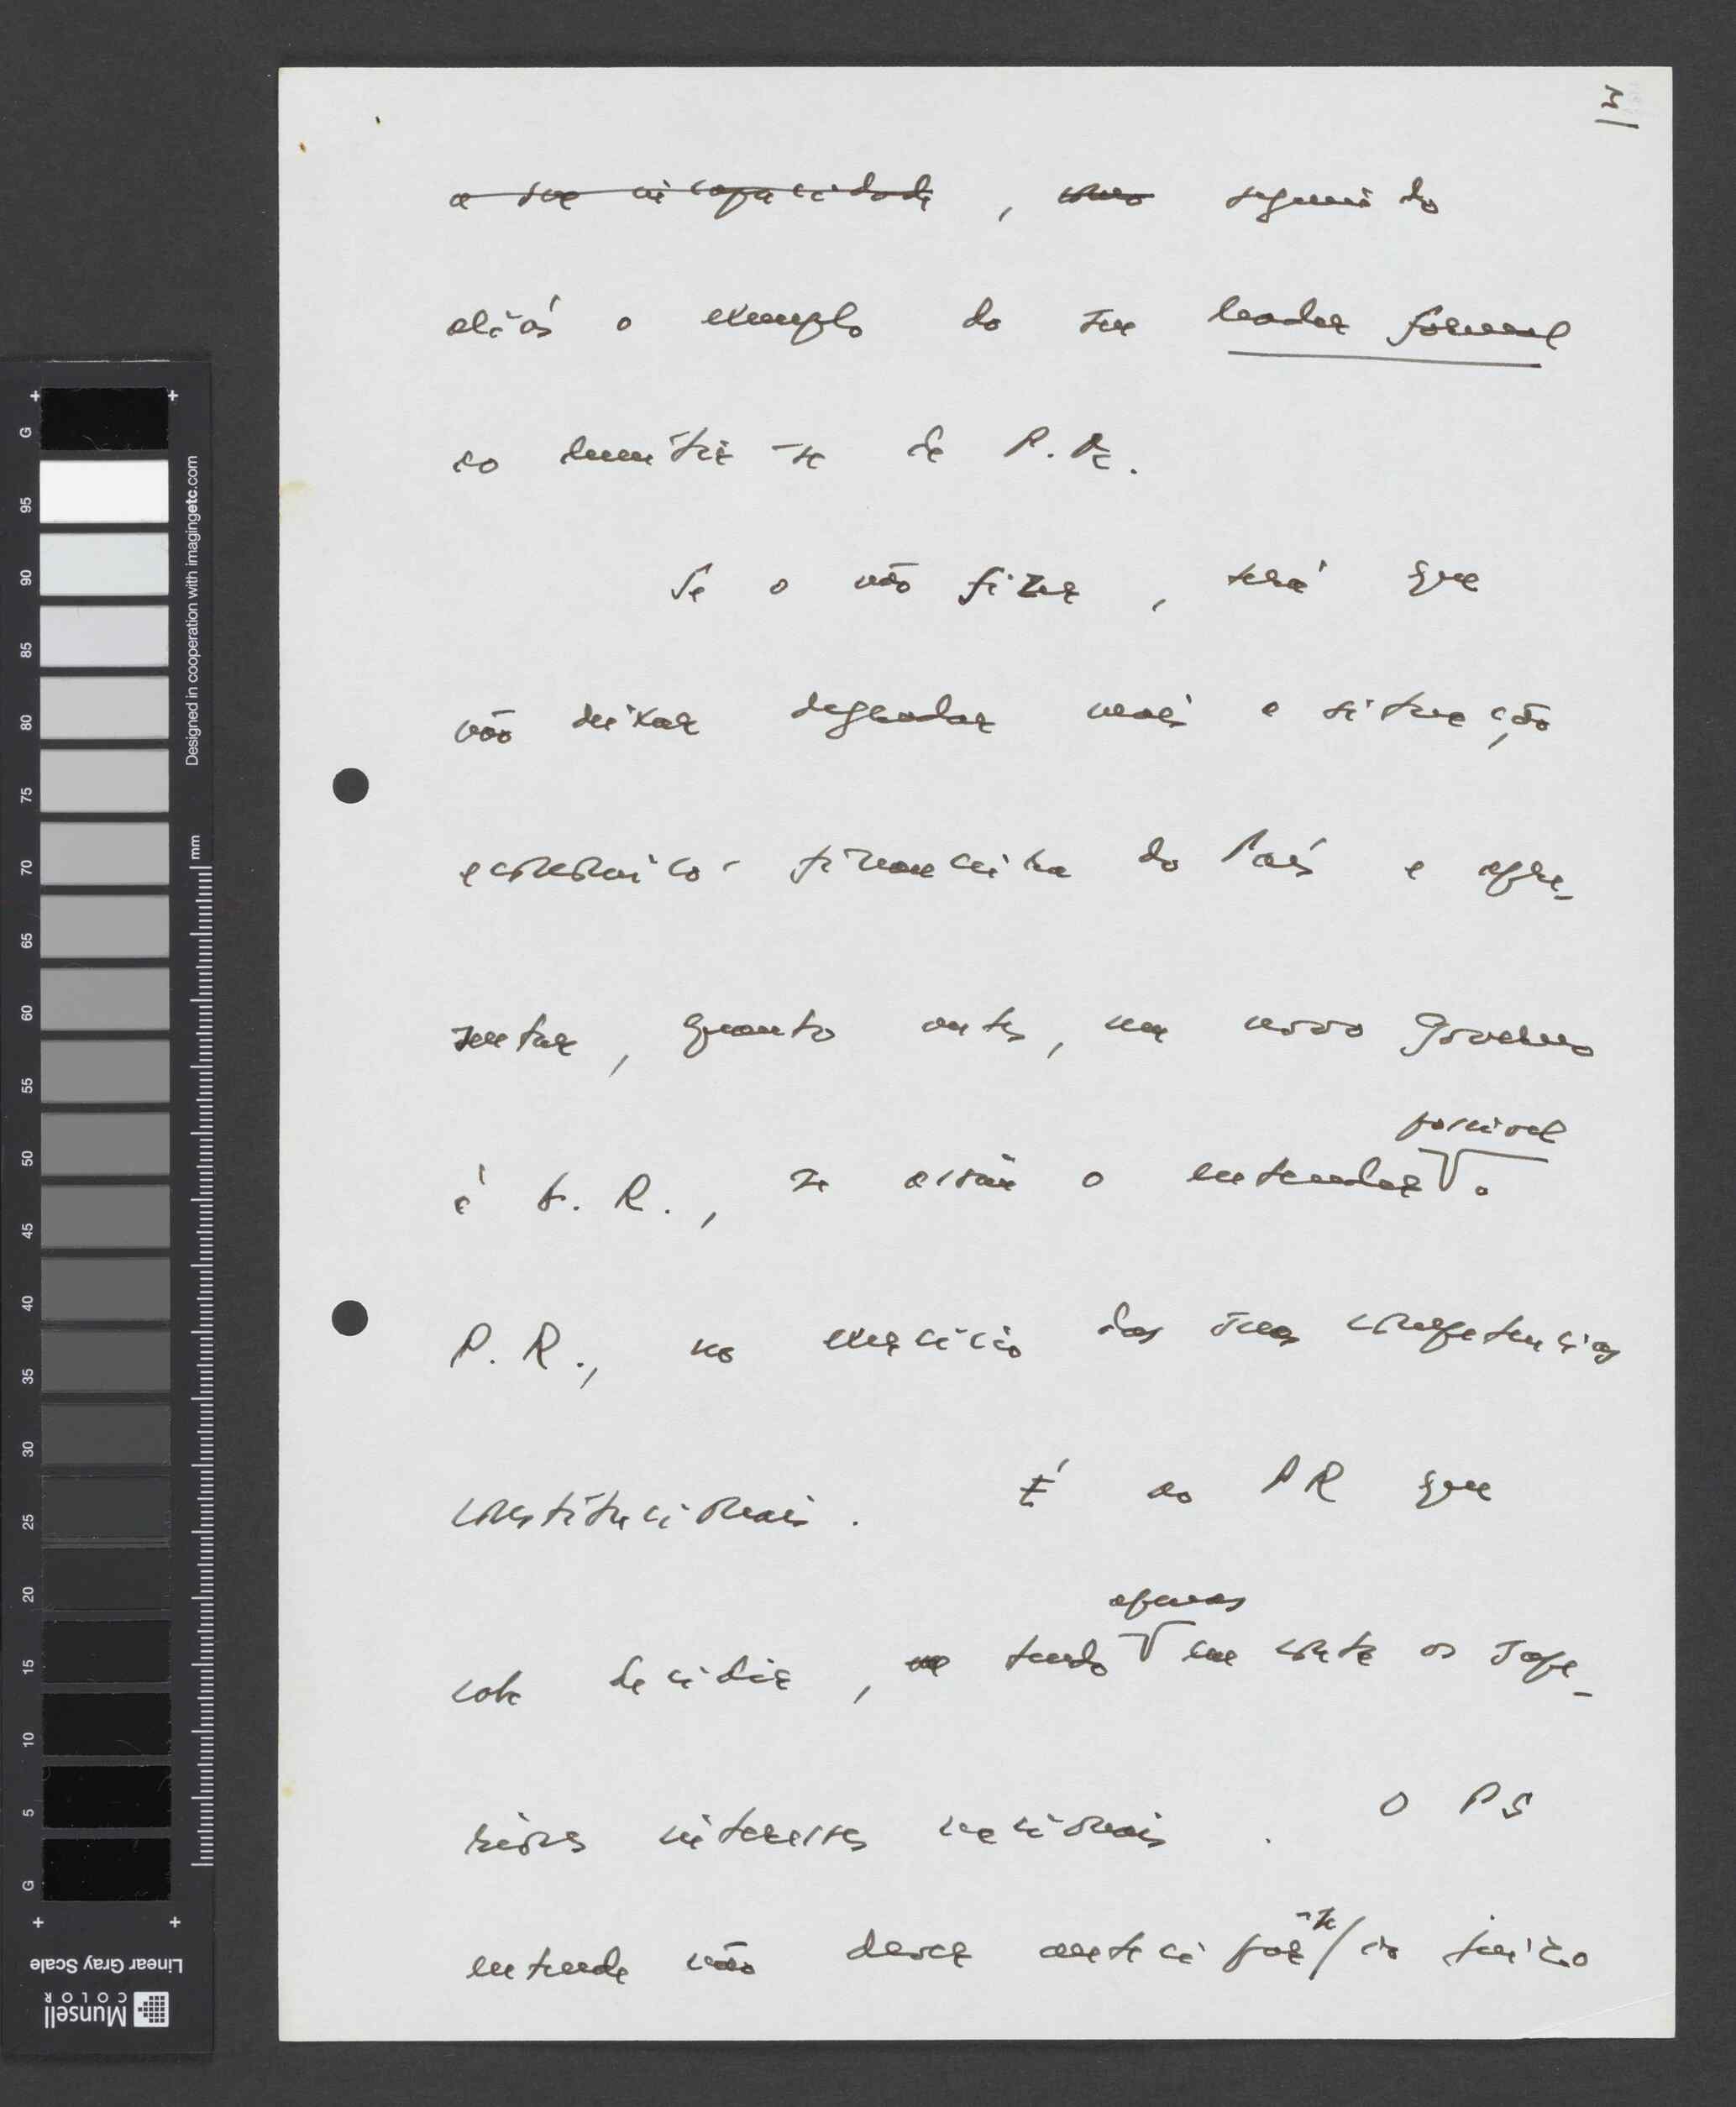 3
a sua incapacidade, como seguindo
aliás o exemplo do seu leader formal
ao demitir-se de P.M.
Se o não fizer, será que
vão deixar degradar mais a situação
económico-financeira do País e apre-
sentar, quanto antes, um novo Governo
à A. R., se assim o entender
possível
o
P. R., no exercício das suas competencias
constitucionais. É ao PR que
apenas
cabe decidir, tendo em conta os supe-
riores interesses nacionais. O PS
entende não dever antecipar-se / ao juízo
G
95
90
85
80
75
70
65
60
55
50
45
40
35
30
25
20
15
10
5
G
mm
Designed in cooperation with imagingetc.com
Linear Gray Scale
Munsell
COLOR